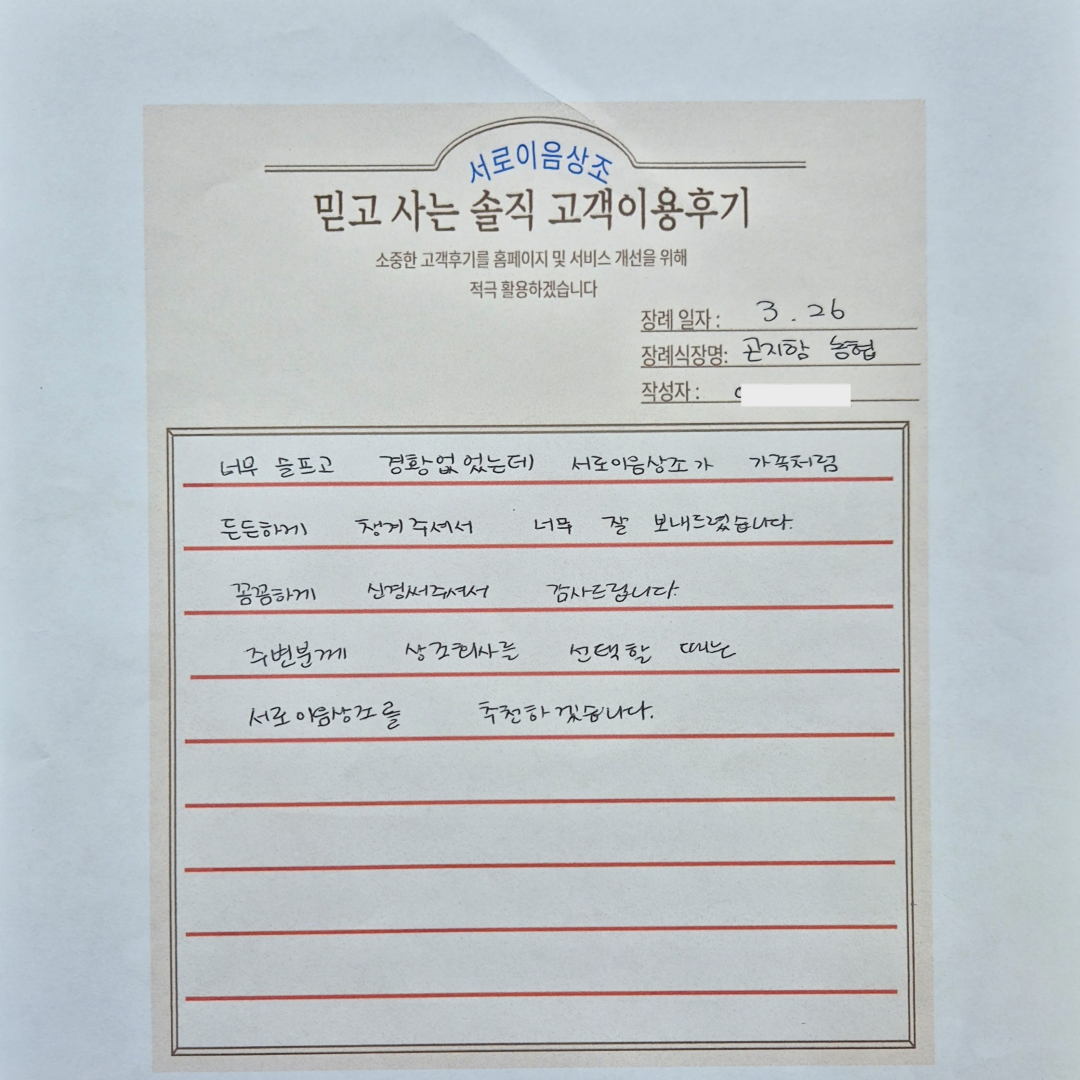 서로이음상조
믿고 사는 솔직 고객이용후기
소중한 고객후기를 홈페이지 및 서비스 개선을 위해
적극 활용하겠습니다
장례 일자 : 3 . 26
장례식장명: 곤지암 농협
작성자 :
너무 슬프고 경황없었는데 서로이음상조가 가족처럼
든든하게 챙겨주셔서 너무 잘 보내드렸습니다.
꼼꼼하게 신경써주셔서 감사드립니다.
주변분께 상조회사를 선택할 때는
서로이음상조를 추천하겠습니다.